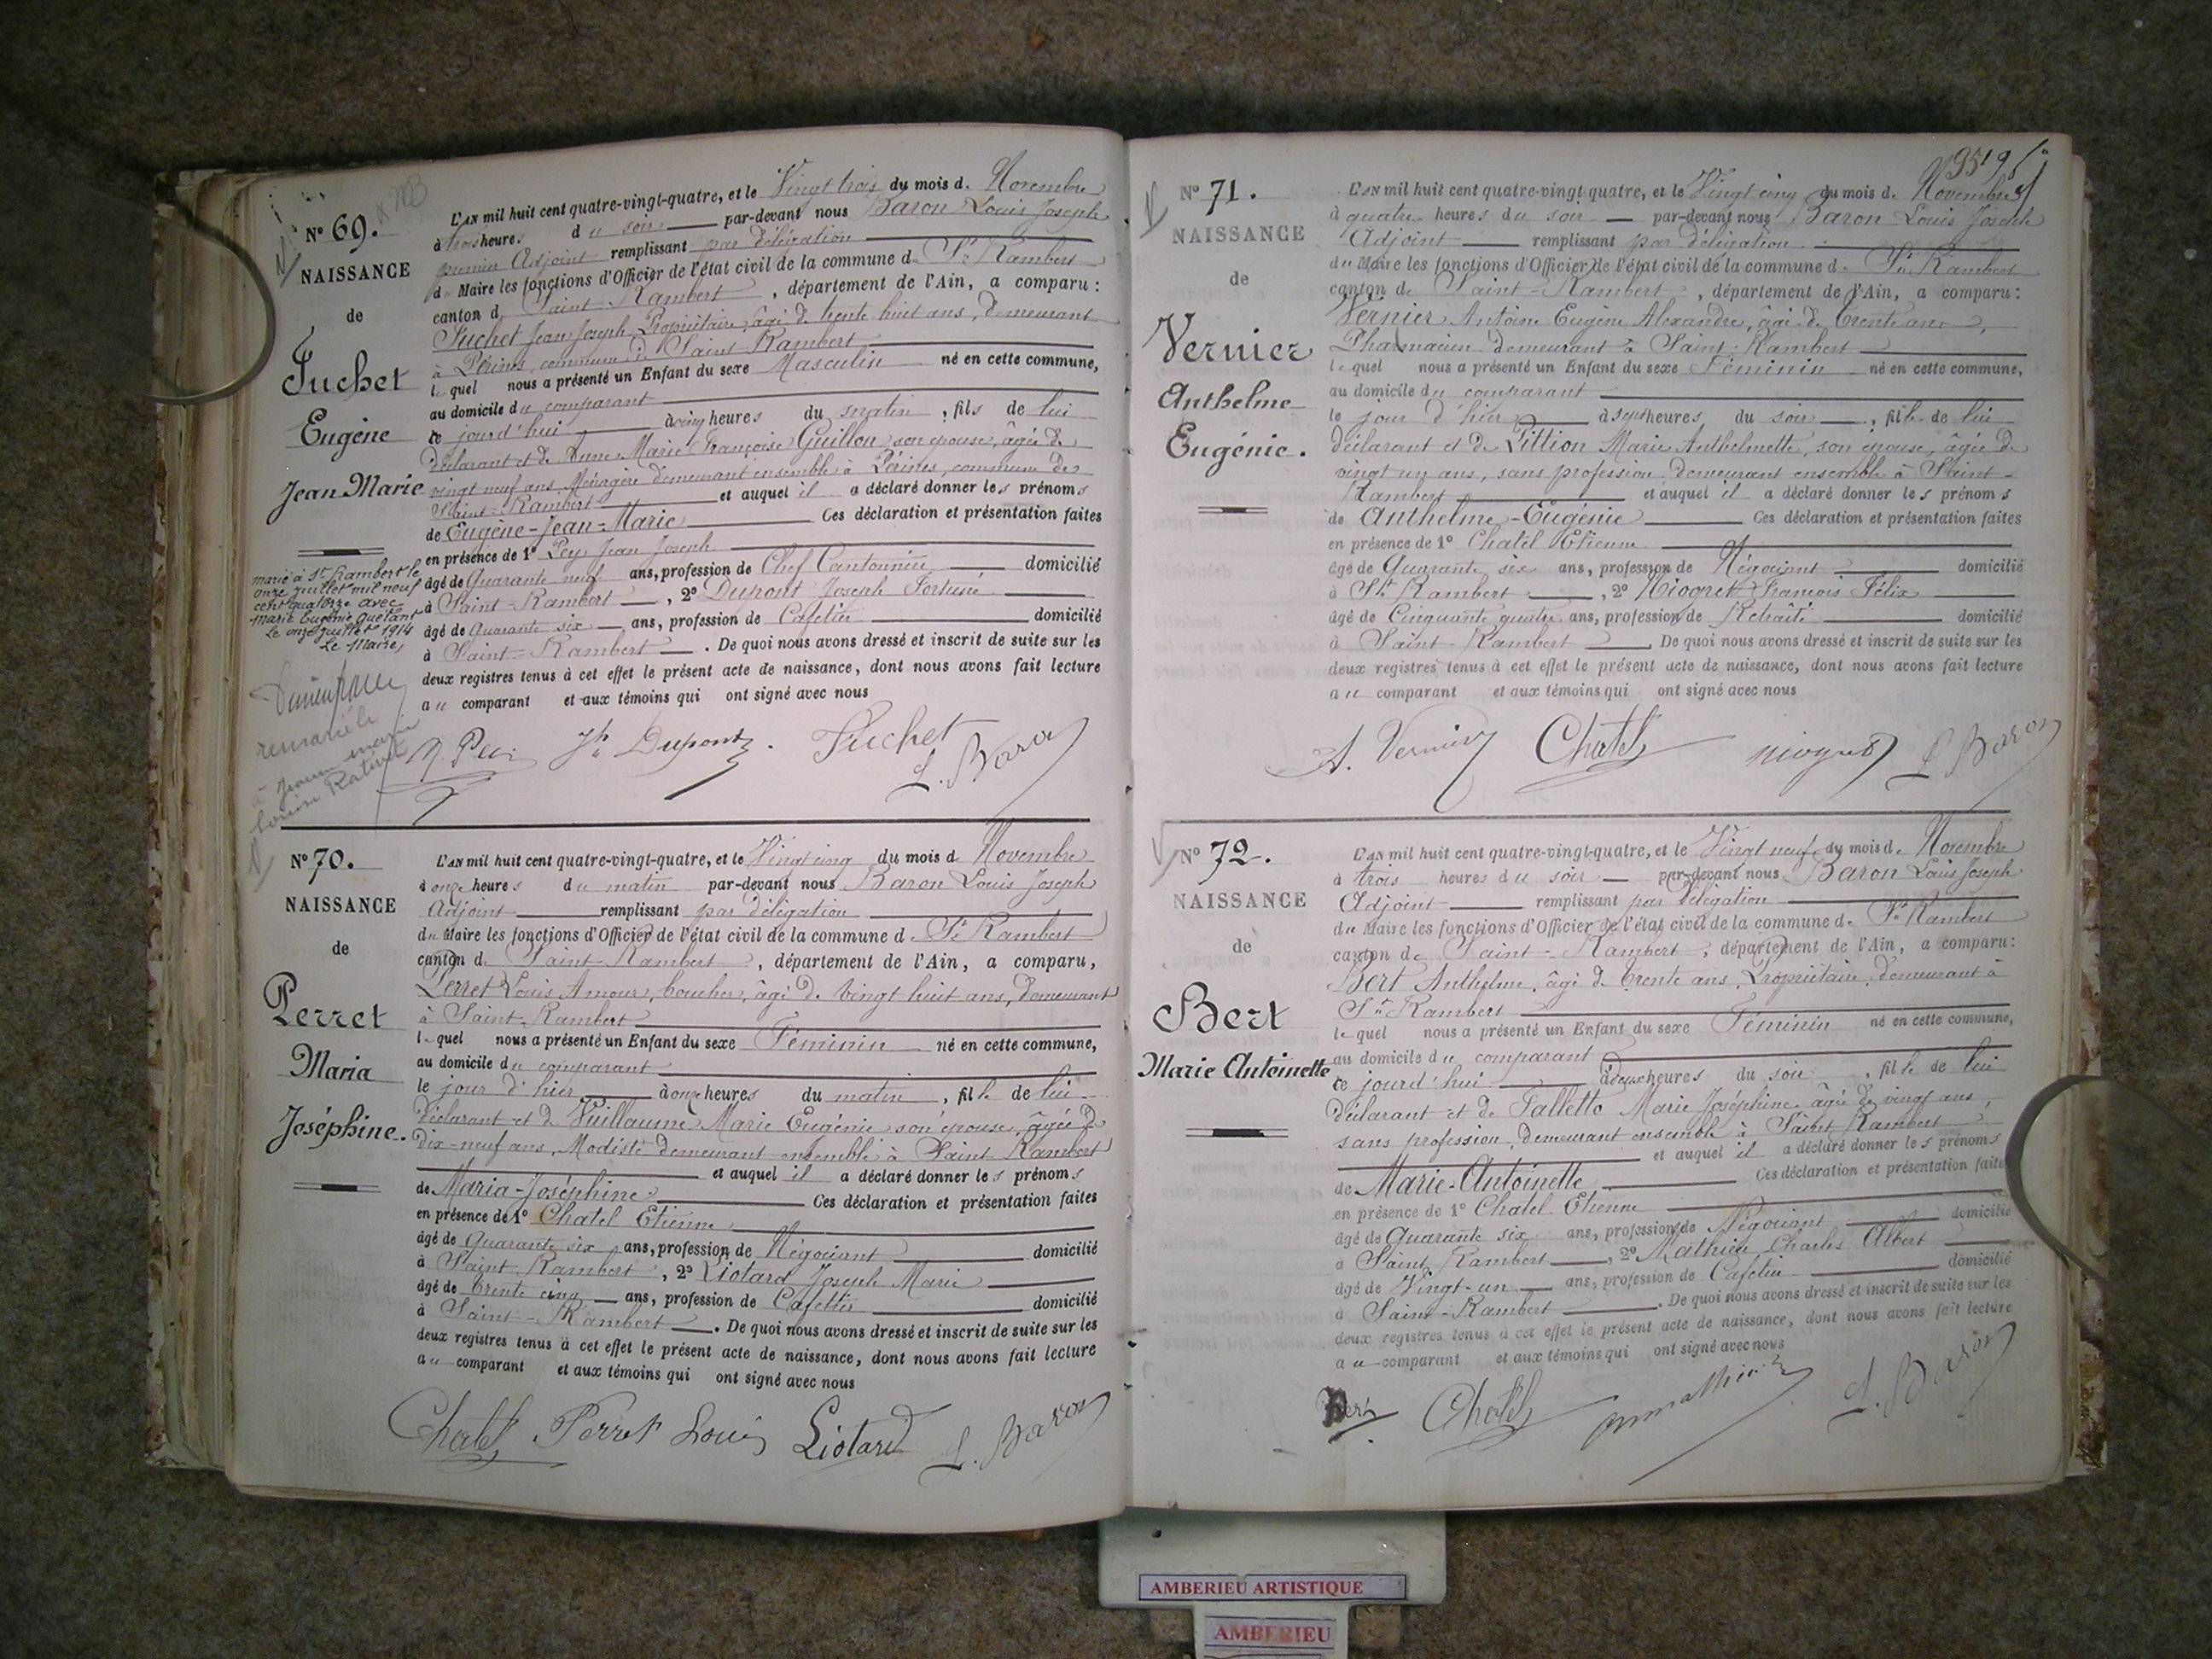 N° 69.
NAISSANCE
de
Juchet
Eugène
Jean Marie
L'AN mil huit cent quatre-vingt-quatre, et le Vingt trois du mois d. Novembre
à trois heures du soir par-devant nous Baron Louis Joseph
premier Adjoint remplissant par délégation
du Maire les fonctions d'Officier de l'état civil de la commune d. St Rambert
canton d. Saint-Rambert, département de l'Ain, a comparu :
Juchet Jean Joseph, Propriétaire, âgé de trente huit ans, demeurant
à commune de Saint Rambert
lequel nous a présenté un Enfant du sexe Masculin né en cette commune,
au domicile du comparant
ce jourd'hui à cinq heures du matin, fils de lui
déclarant et de Marie Françoise Guillon son épouse, âgée de
vingt neuf ans, Ménagère demeurant ensemble à commune de
Saint-Rambert et auquel il a déclaré donner les prénoms
de Eugène-Jean-Marie Ces déclaration et présentation faites
en présence de 1° Pey Jean Joseph
âgé de Quarante neuf ans, profession de Chef Cantonnier domicilié
à Saint-Rambert, 2° Dupont Joseph Fortuné
âgé de Quarante six ans, profession de Cafetier domicilié
à Saint-Rambert. De quoi nous avons dressé et inscrit de suite sur les
deux registres tenus à cet effet le présent acte de naissance, dont nous avons fait lecture
au comparant et aux témoins qui ont signé avec nous
marié à St Rambert le
onze juillet mil neuf
cent quatorze avec
Marie Eugénie Quétant
Le onze juillet 1914
Le Maire,
remarié le
à Jeanne marie
Louise
Jh Dupont. Juchet
L. Baron
N° 70.
NAISSANCE
de
Perret
Maria
Joséphine.
L'AN mil huit cent quatre-vingt-quatre, et le Vingt cinq du mois d. Novembre
à onze heures du matin par-devant nous Baron Louis Joseph
Adjoint remplissant par délégation
du Maire les fonctions d'Officier de l'état civil de la commune d. St Rambert
canton d. Saint-Rambert, département de l'Ain, a comparu,
Perret Louis Amour, boucher, âgé de vingt huit ans, demeurant
à Saint-Rambert
lequel nous a présenté un Enfant du sexe Féminin né en cette commune,
au domicile du comparant
le jour d'hier à onze heures du matin, fille de lui
déclarant et de Vuillaume Marie Eugénie son épouse, âgée de
dix-neuf ans, Modiste demeurant ensemble à Saint Rambert
et auquel il a déclaré donner les prénoms
de Maria-Joséphine Ces déclaration et présentation faites
en présence de 1° Chatel Etienne
âgé de Quarante six ans, profession de Négociant domicilié
à Saint-Rambert, 2° Liotard Joseph Marie
âgé de trente cinq ans, profession de Cafetier domicilié
à Saint-Rambert. De quoi nous avons dressé et inscrit de suite sur les
deux registres tenus à cet effet le présent acte de naissance, dont nous avons fait lecture
au comparant et aux témoins qui ont signé avec nous
Chatel Perret Louis Liotard L. Baron
N° 71.
NAISSANCE
de
Vernier
Anthelme
Eugénie.
L'AN mil huit cent quatre-vingt-quatre, et le Vingt cinq du mois d. Novembre
à quatre heures du soir par-devant nous Baron Louis Joseph
Adjoint remplissant par délégation
du Maire les fonctions d'Officier de l'état civil de la commune d. St Rambert
canton de Saint-Rambert, département de l'Ain, a comparu :
Vernier Antoine Eugène Alexandre, âgé de trente ans,
Pharmacien demeurant à Saint-Rambert
lequel nous a présenté un Enfant du sexe Féminin né en cette commune,
au domicile du comparant
le jour d'hier à sept heures du soir, fille de lui
déclarant et de Littion Marie Anthelmette, son épouse, âgée de
vingt un ans, sans profession demeurant ensemble à Saint-
Rambert et auquel il a déclaré donner les prénoms
de Anthelme-Eugénie Ces déclaration et présentation faites
en présence de 1° Chatel Etienne
âgé de Quarante six ans, profession de Négociant domicilié
à St Rambert, 2° Niogret François Félix
âgé de Cinquante quatre ans, profession de Retraité domicilié
à Saint-Rambert. De quoi nous avons dressé et inscrit de suite sur les
deux registres tenus à cet effet le présent acte de naissance, dont nous avons fait lecture
au comparant et aux témoins qui ont signé avec nous
A. Vernier Chatel niogret L. Baron
N° 72.
NAISSANCE
de
Bert
Marie Antoinette
L'AN mil huit cent quatre-vingt-quatre, et le Vingt neuf du mois d. Novembre
à trois heures du soir par-devant nous Baron Louis Joseph
Adjoint remplissant par délégation
du Maire les fonctions d'Officier de l'état civil de la commune d. St Rambert
canton de Saint-Rambert, département de l'Ain, a comparu :
Bert Anthelme, âgé de trente ans, Propriétaire, demeurant à
St Rambert
lequel nous a présenté un Enfant du sexe Féminin né en cette commune,
au domicile du comparant
ce jourd'hui à deux heures du soir, fille de lui
déclarant et de Falletto Marie Joséphine, âgée de vingt ans,
sans profession, demeurant ensemble à Saint Rambert
et auquel il a déclaré donner les prénoms
de Marie-Antoinette Ces déclaration et présentation faites
en présence de 1° Chatel Etienne
âgé de Quarante six ans, profession de Négociant domicilié
à Saint Rambert, 2° Mathieu Charles Albert
âgé de Vingt-un ans, profession de Cafetier domicilié
à Saint-Rambert. De quoi nous avons dressé et inscrit de suite sur les
deux registres tenus à cet effet le présent acte de naissance, dont nous avons fait lecture
au comparant et aux témoins qui ont signé avec nous
Bert Chatel L. Baron
AMBERIEU ARTISTIQUE
AMBERIEU